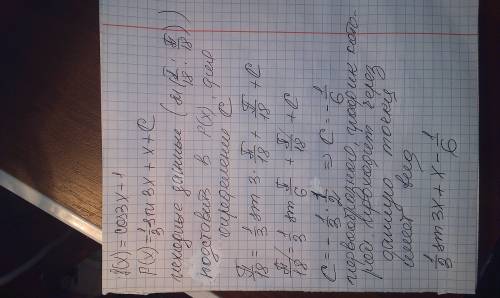 f(x) = cos3x+1
F(x) = 1/3 sin 3x + x + C
исходные данные (M(π/18; π/18))
подставить в F(x), для
определения C
π/18 = 1/3 sin 3·π/18 + π/18 + C
π/18 = 1/3 sin π/6 + π/18 + C
C = -1/3 · 1/2 ⇒ C = -1/6
первообразного, график кото-
рой проходит через
данную точку
имеет вид
1/3 sin 3x + x - 1/6